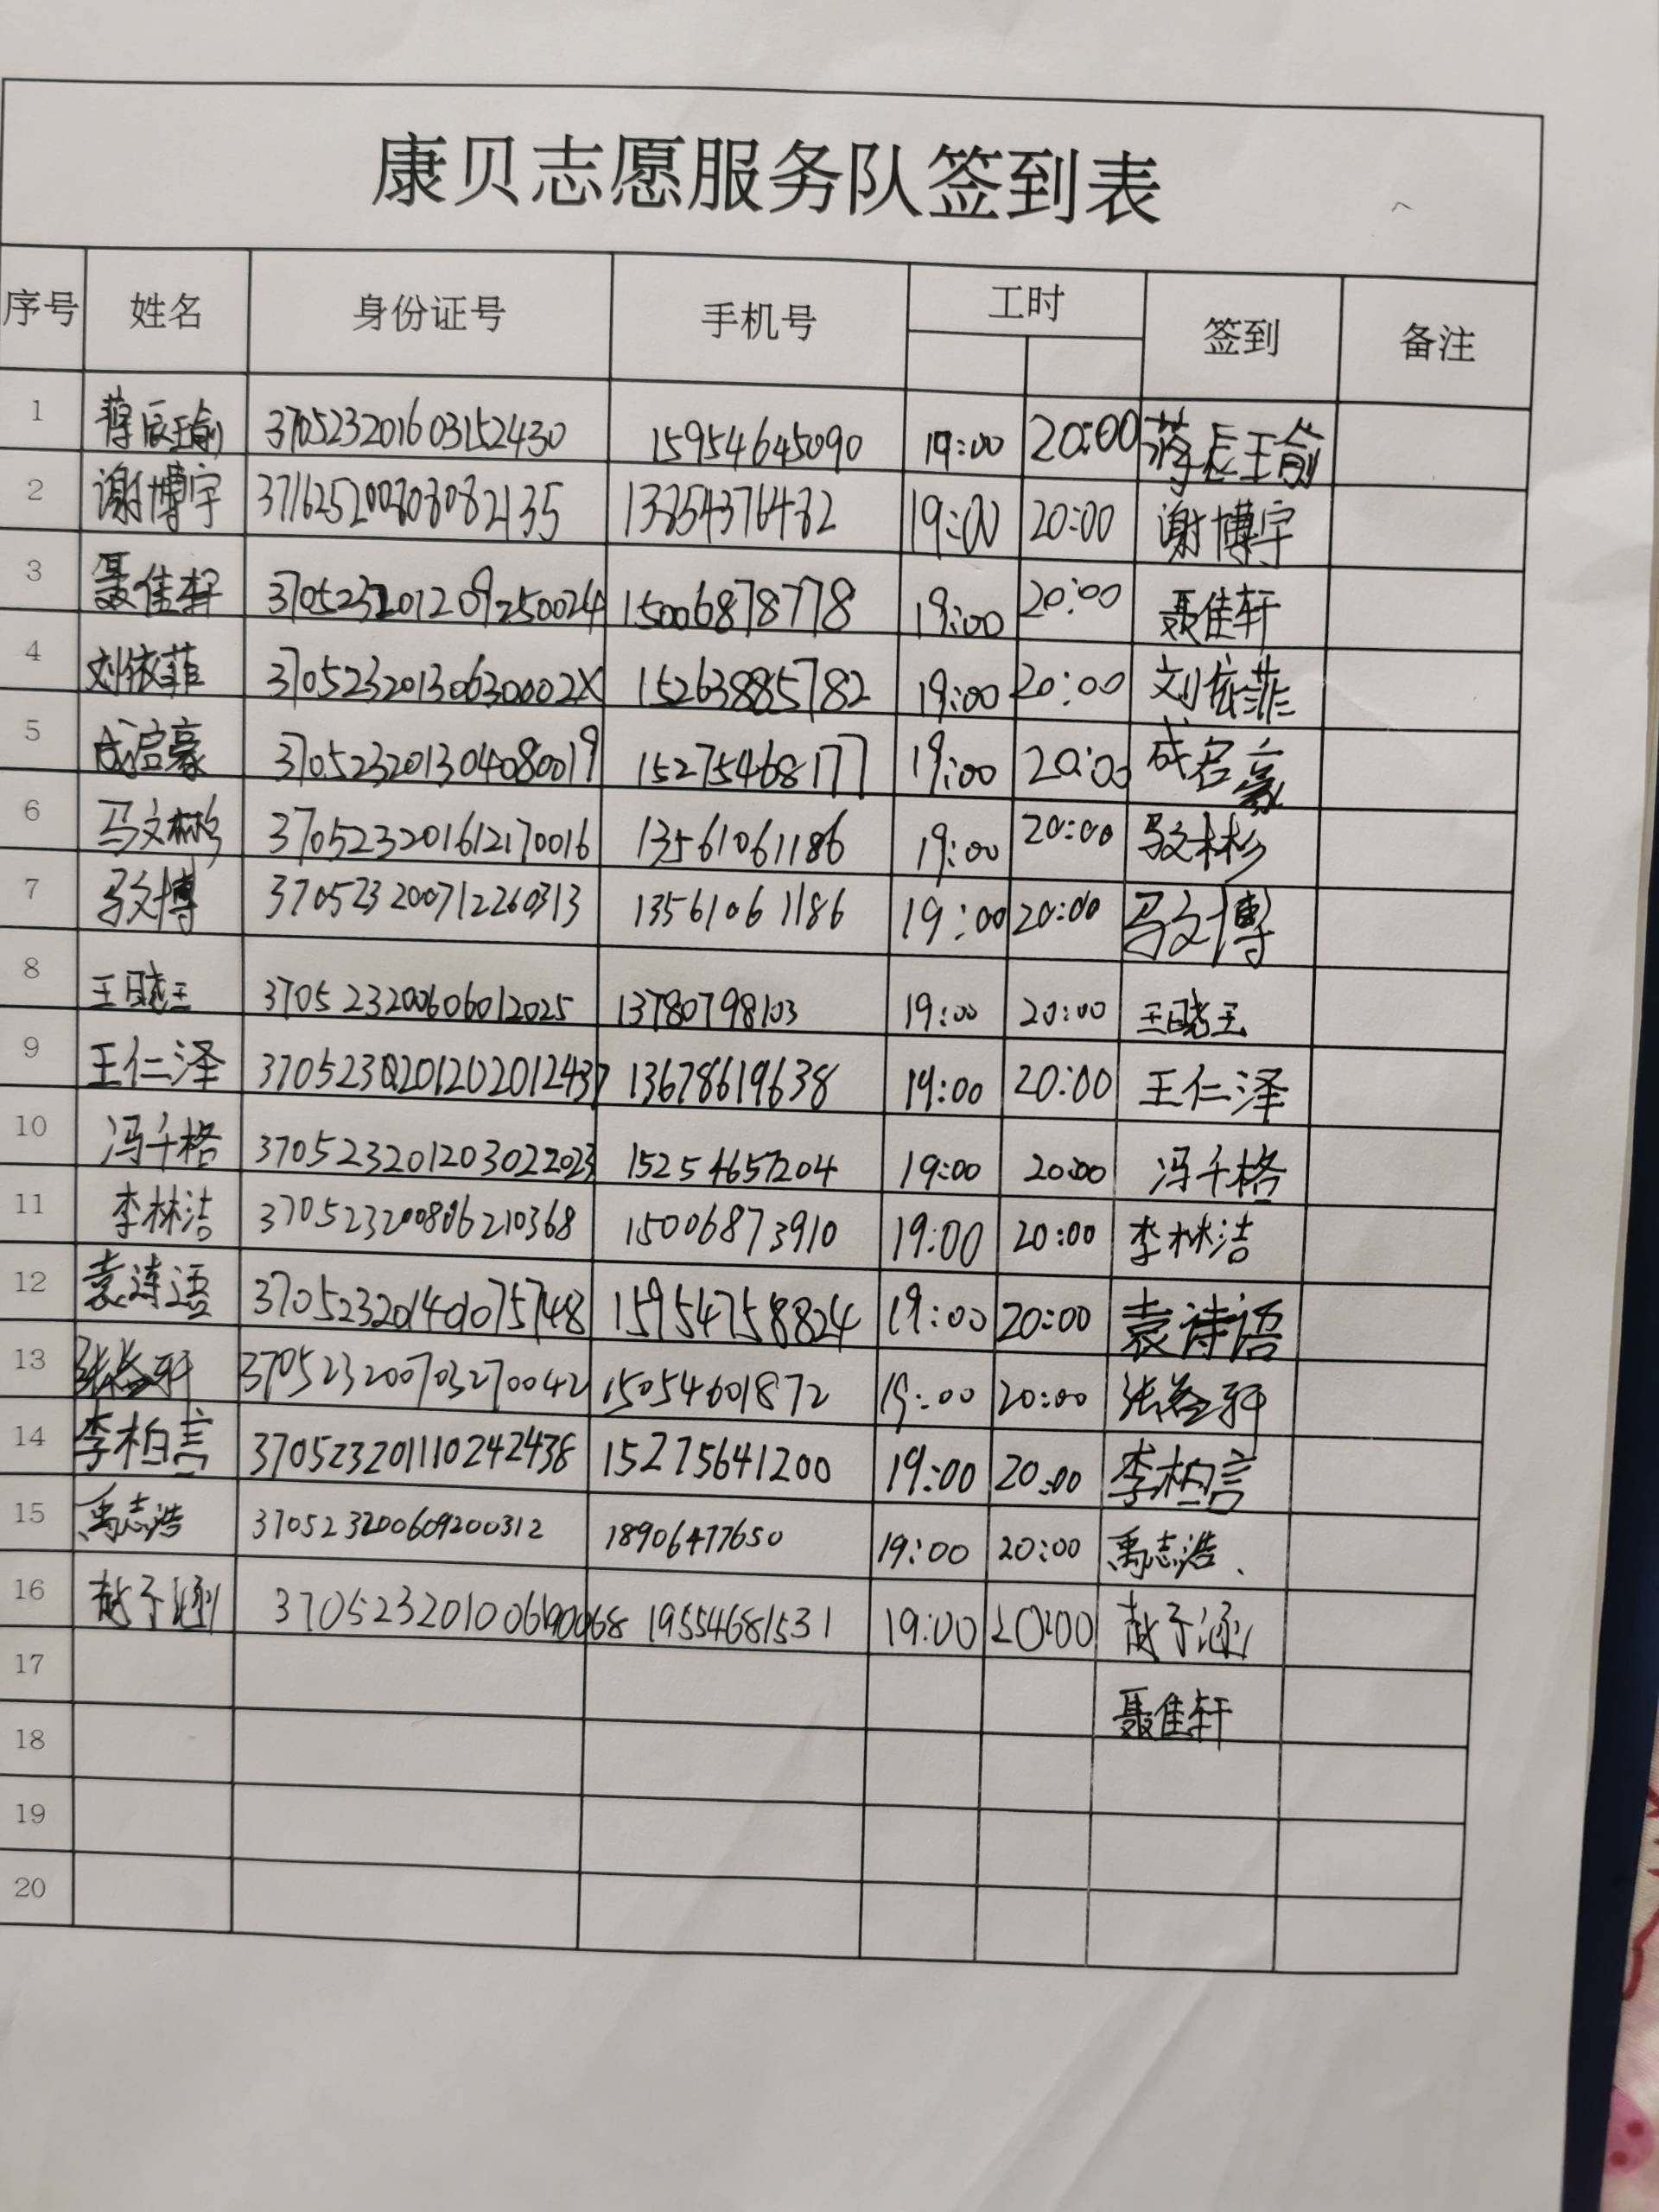 康贝志愿服务队签到表
序号 姓名 身份证号 手机号 工时 签到 备注
1 蒋辰瑜 370523201603152430 15954645090 19:00 20:00 蒋辰瑜
2 谢博宇 19:00 20:00 谢博宇
3 聂佳轩 370523201209250024 15006878778 19:00 20:00 聂佳轩
4 刘依菲 37052320130630002X 15263885782 19:00 20:00 刘依菲
5 成启豪 370523201304080019 15275468177 19:00 20:00 成启豪
6 马文彬 370523201612170016 13561061186 19:00 20:00 马文彬
7 马文博 370523200712260313 13561061186 19:00 20:00 马文博
8 370523200606012025 13780798103 19:00 20:00
9 王仁泽 13678619638 19:00 20:00 王仁泽
10 冯千格 370523201203022023 15254657204 19:00 20:00 冯千格
11 李林洁 370523200806210368 15006873910 19:00 20:00 李林洁
12 袁诗语 15954758824 19:00 20:00 袁诗语
13 370523200703270042 15054601872 19:00 20:00
14 李柏言 370523201110242438 15275641200 19:00 20:00 李柏言
15 禹志浩 370523200609200312 18906477650 19:00 20:00 禹志浩
16 19554681531 19:00 20:00
17 聂佳轩
18
19
20